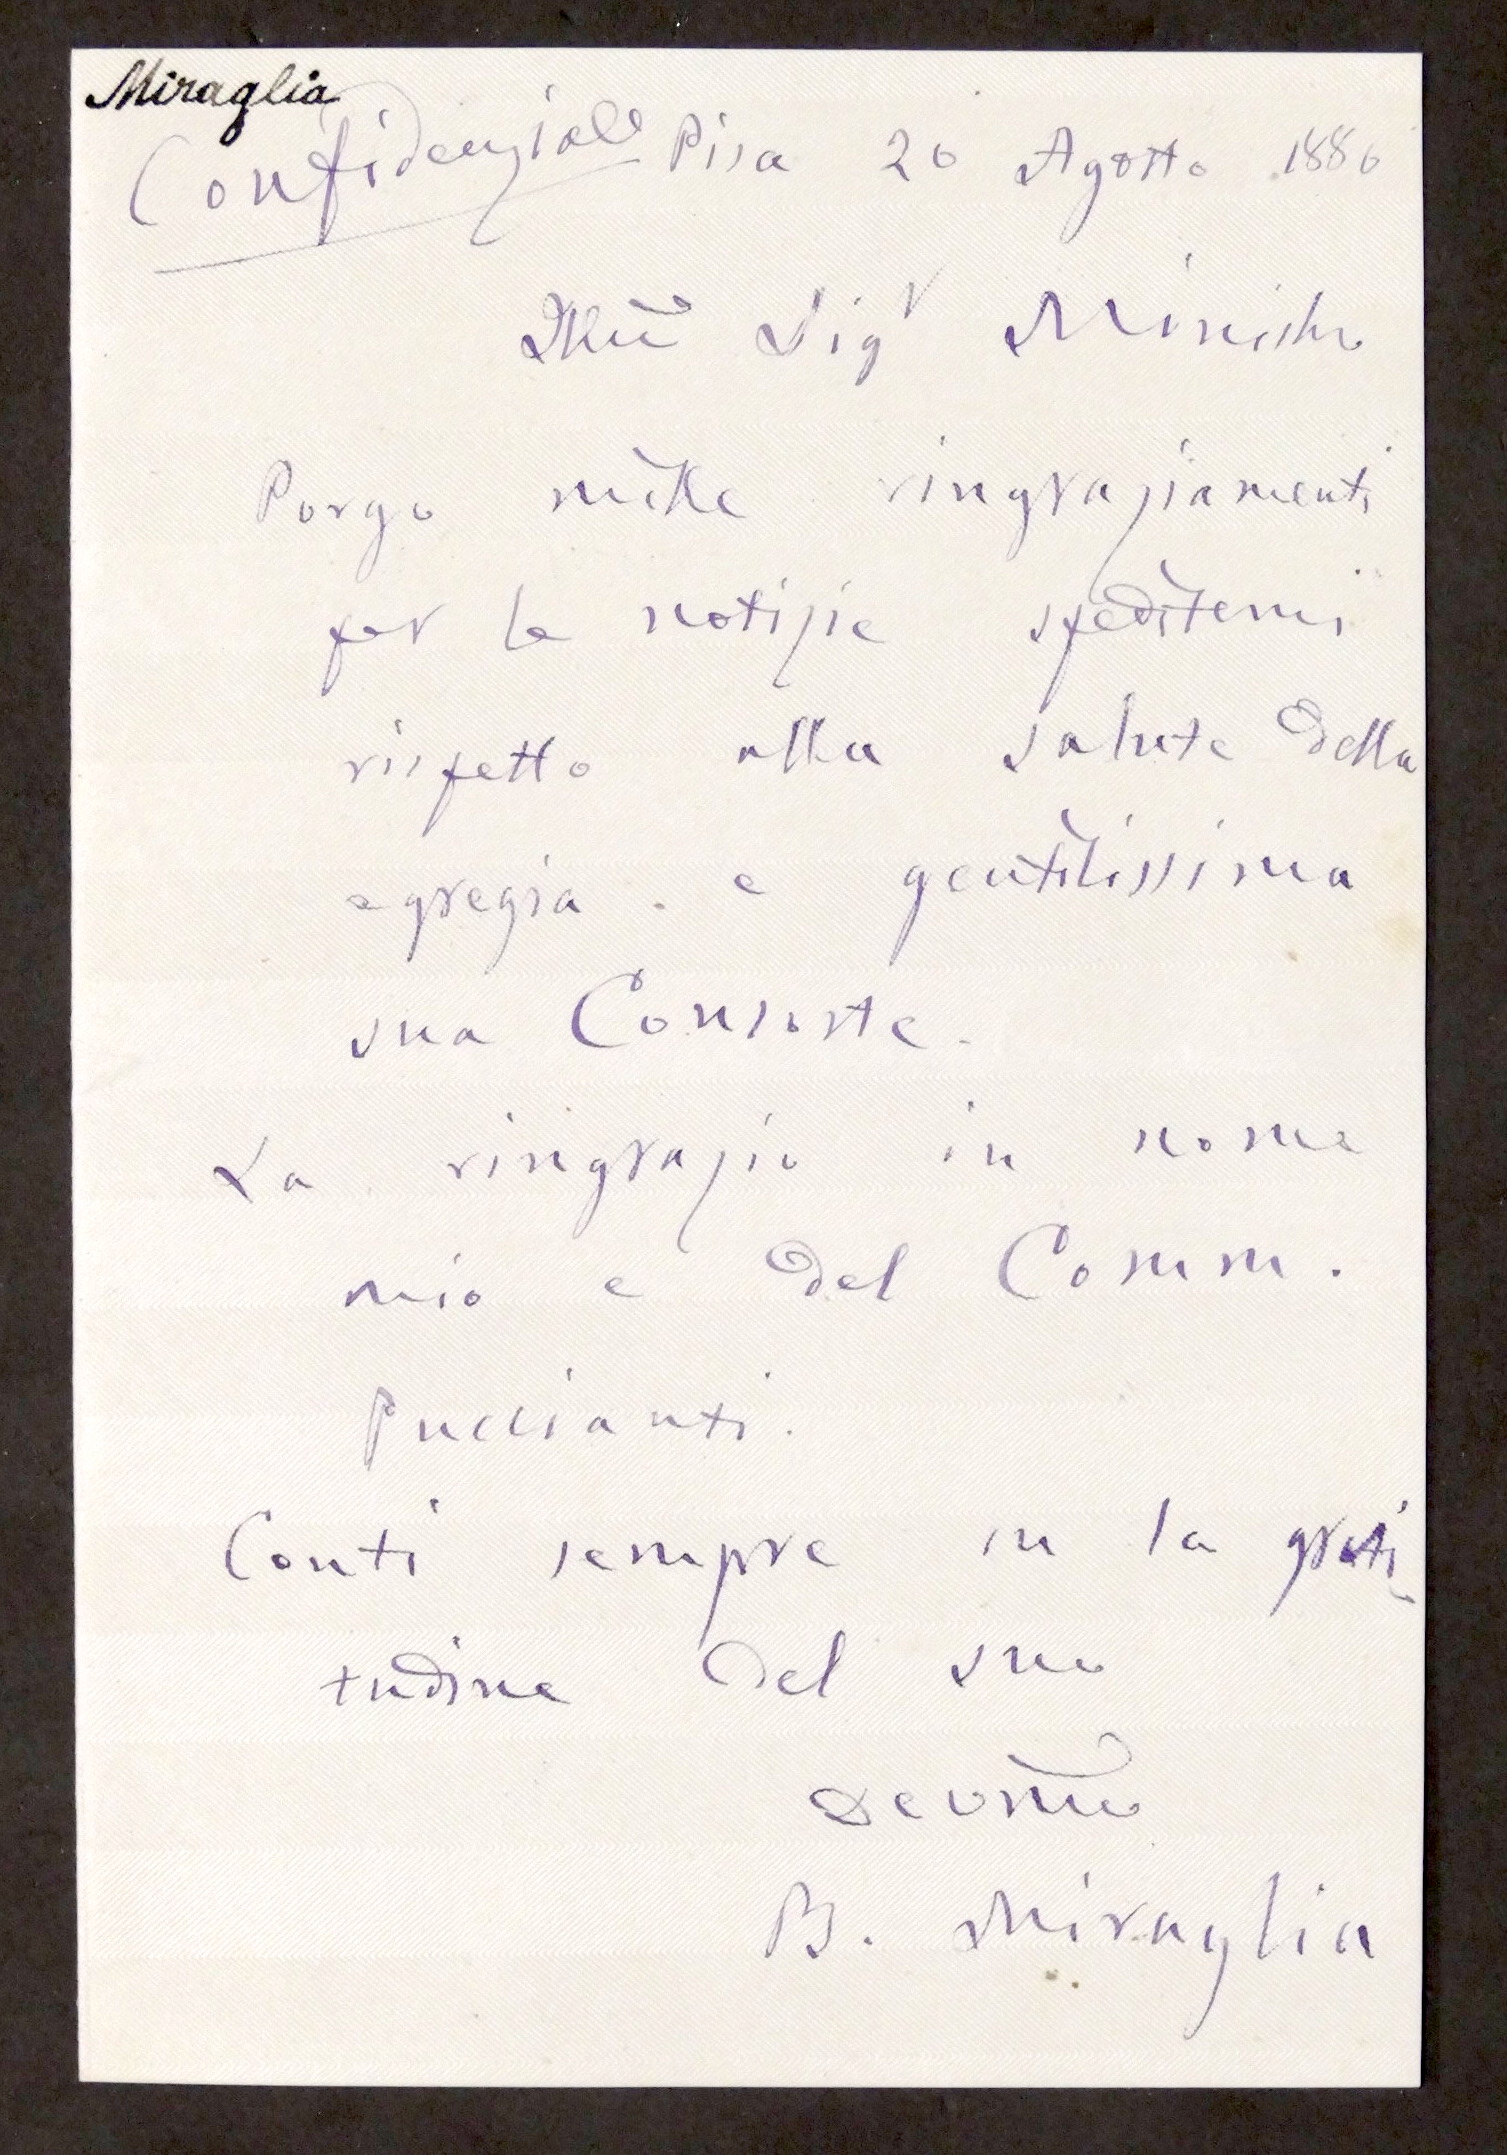 Miraglia
Confidenziale Pisa 20 Agosto 1880
Illmo Sigr Ministro
Porgo mille ringraziamenti
per le notizie speditemi
rispetto alla salute della
egregia e gentilissima
sua Consorte.
La ringrazio in nome
mio e del Comm.
Puccianti.
Conti sempre in la grati-
tudine del suo
Devmo
B. Miraglia